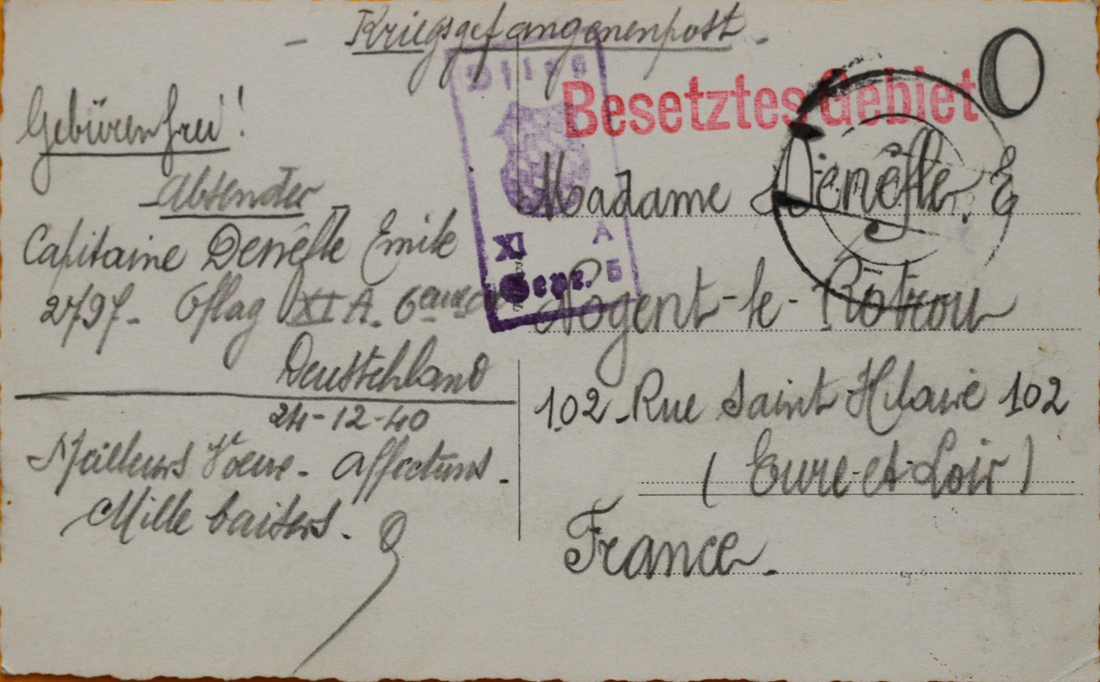 - Kriegsgefangenenpost -
Gebürenfrei!
Absender
Capitaine Denèfle Emile
2797 - Oflag XI A. 6ème
Deutschland
24-12-40
Meilleurs Voeux - Affectueux -
Mille baisers.
Oflag
XI A
Gepr. 5
Besetztes Gebiet
O
Madame Denèfle. E
Nogent-le-Rotrou
102 - Rue Saint Hilaire 102
(Eure-et-Loir)
France.